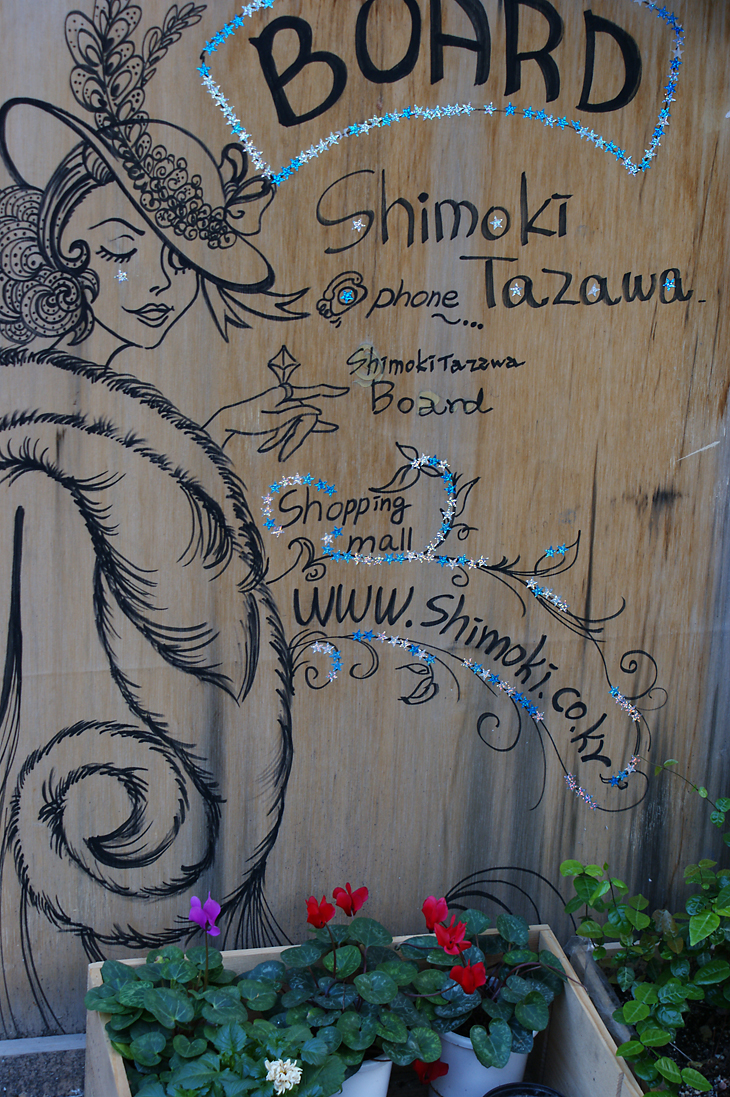 BOARD
Shimoki
phone Tazawa
ShimokiTazzwa
Board
Shopping
mall
www.shimoki.co.kr